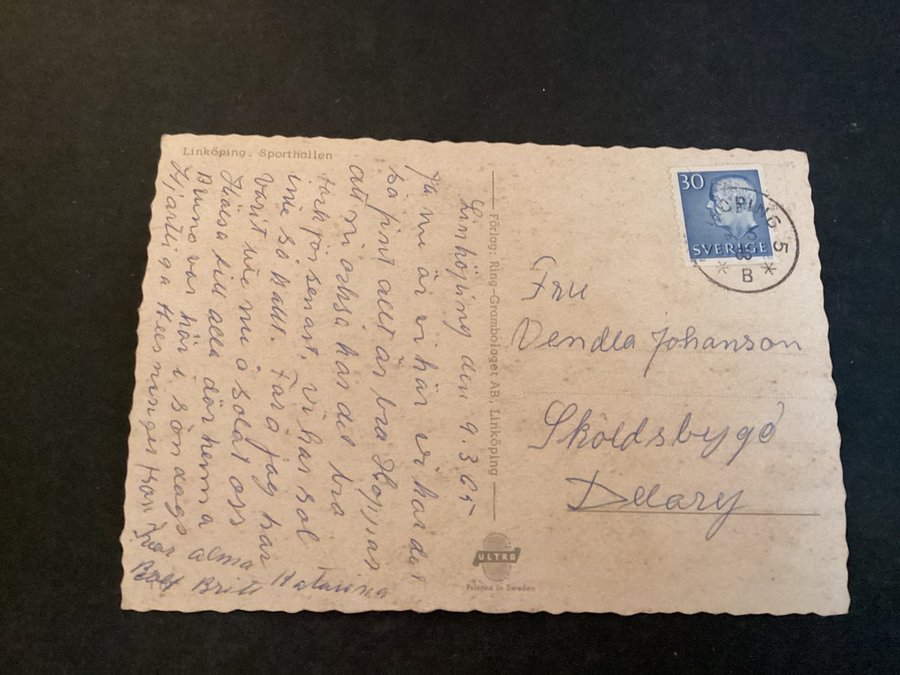 Linköping. Sporthallen
Linköping den 9.3.65
Ja nu är vi här vi har det
så fint allt är bra Hoppas
att ni också har det bra
tack för senast. vi har sol
inte så kallt. Fara jag har
varit ute nu o solat oss
Hälsa till alla där hemma
Bruno var här i söndags
Hjärtliga Hälsningar
Ivar Alma Katarina
Britt
Förlag: Ring-Grambolaget AB, Linköping
ULTRA
Printed in Sweden
30
SVERIGE
ÖPING 5
B
Fru
Vendla Johanson
Sköldsbygd
Delary